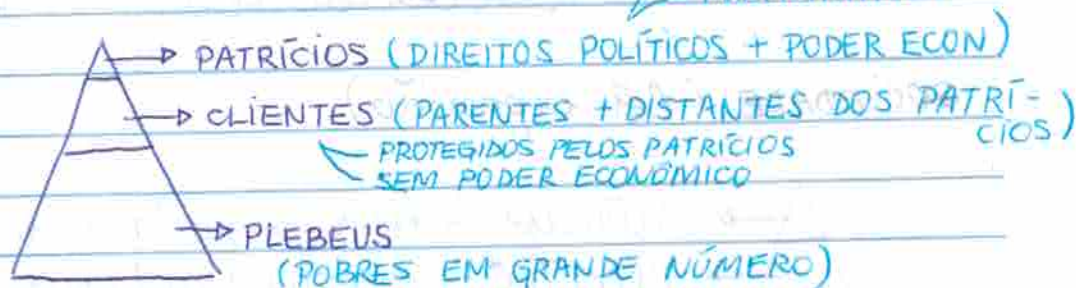 PATRÍCIOS (DIREITOS POLÍTICOS + PODER ECON)
CLIENTES (PARENTES + DISTANTES DOS PATRÍ-
CIOS)
PROTEGIDOS PELOS PATRÍCIOS
SEM PODER ECONÔMICO
PLEBEUS
(POBRES EM GRANDE NÚMERO)